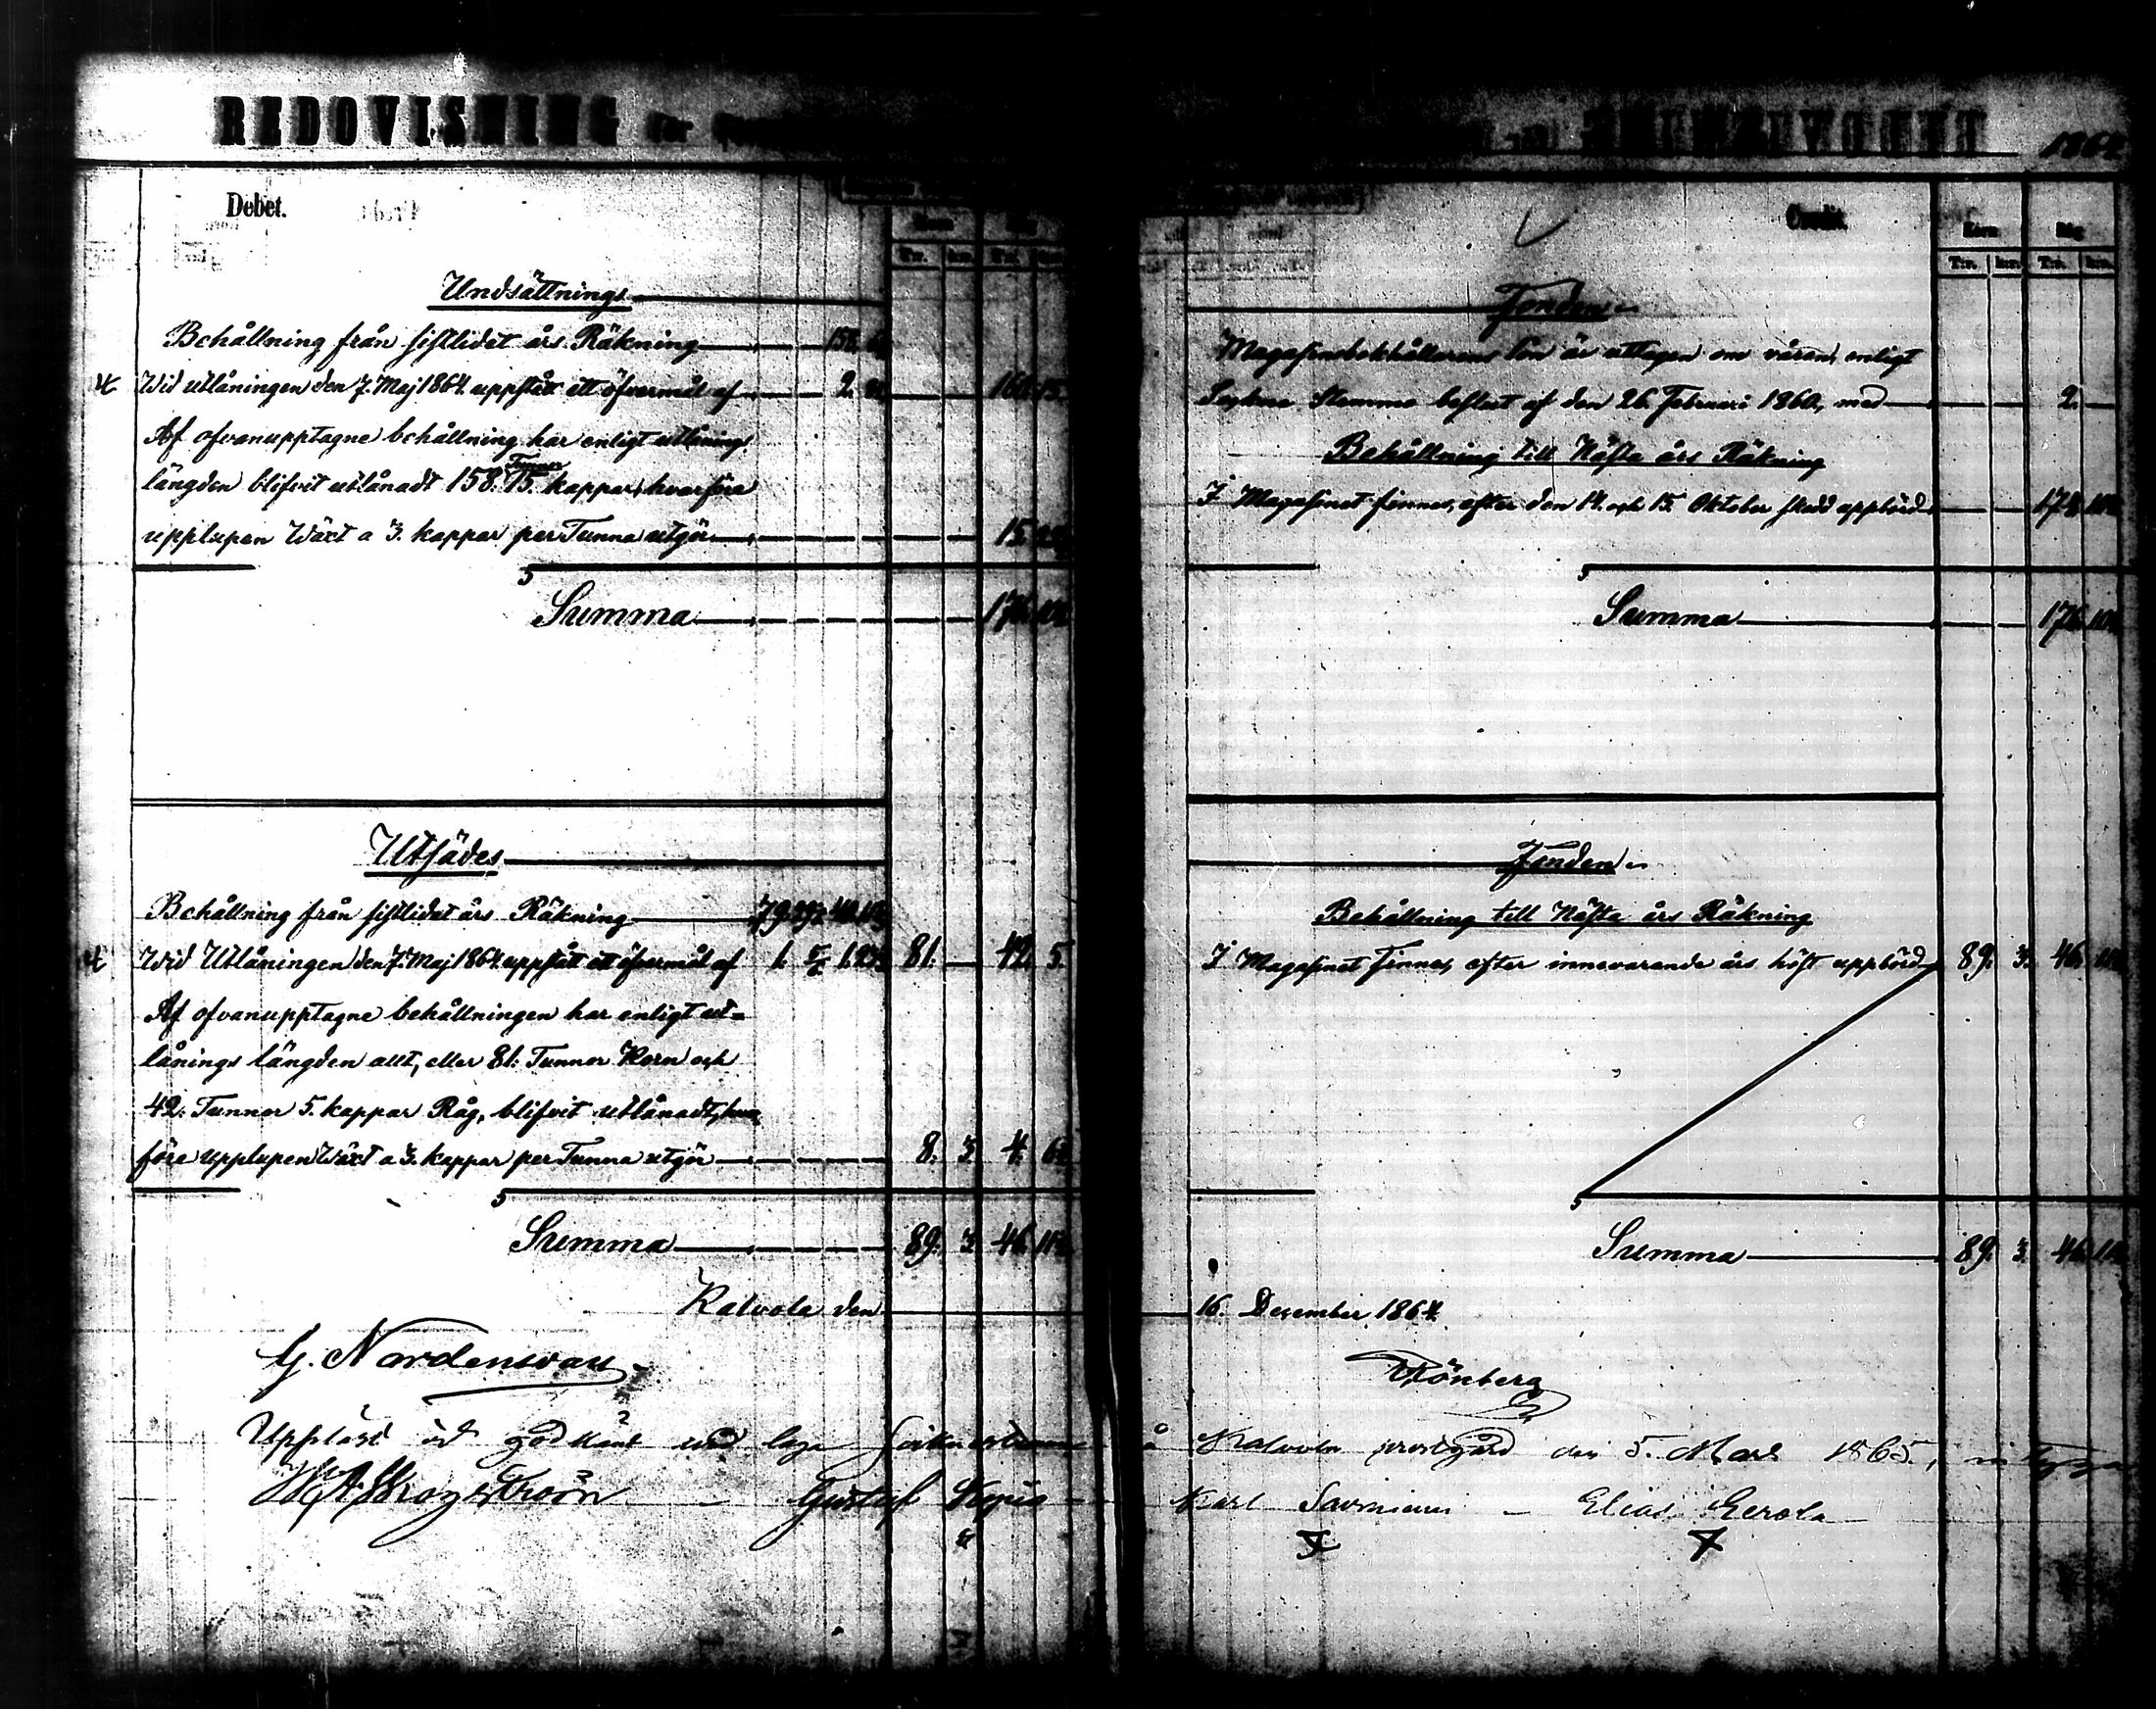 REDOVISNING för
1864
Debet.
Credit.
Korn Råg
T:r. k:r. T:r. k:r.
Undsättnings
Behållning från sistlidet års Räkning 158.
Wid utlåningen den 7. Maj 1864. uppstått ett öfvermål af 2. 160. 15.
Af ofvanupptagne behållning har enligt utlånings
längden blifvit utlånadt 158. Tunnor 15. kappar, hvarföre
upplupen Wäxt a 3. kappar per Tunna utgör 15.
Summa 176.
Fonden
Magasinsbokhållarens lön är uttagen om våren, enligt
Sockne Stemmo beslut af den 26. Februari 1860, med 2.
Behållning till Nästa års Räkning
I Magasinet finnes, efter den 14. och 15. Oktober skedd uppbörd 174.
Summa 176.
Utsädes
Behållning från sistlidet års Räkning 79.
Wid Utlåningen den 7. Maj 1864. uppstått ett öfvermål af 1. 81. 42. 5.
Af ofvanupptagne behållningen har enligt ut-
lånings längden allt, eller 81. Tunnor Korn och
42. Tunnor 5. kappar Råg, blifvit utlånadt, hvar
före upplupen Wäxt a 3. kappar per Tunna utgör 8. 3. 4.
Summa 89. 3. 46.
Fonden
Behållning till Nästa års Räkning
I Magasinet Finnes, efter innevarande års höst uppbörd 89. 3. 46.
Summa 89. 3. 46.
Kalvola den 16. December 1864.
G. Nordensvan Rönberg
Uppläst och godkänt vid laga å Kalvola prestgård den 5. Mars 1865,
Gustaf Karl Elias Eerola